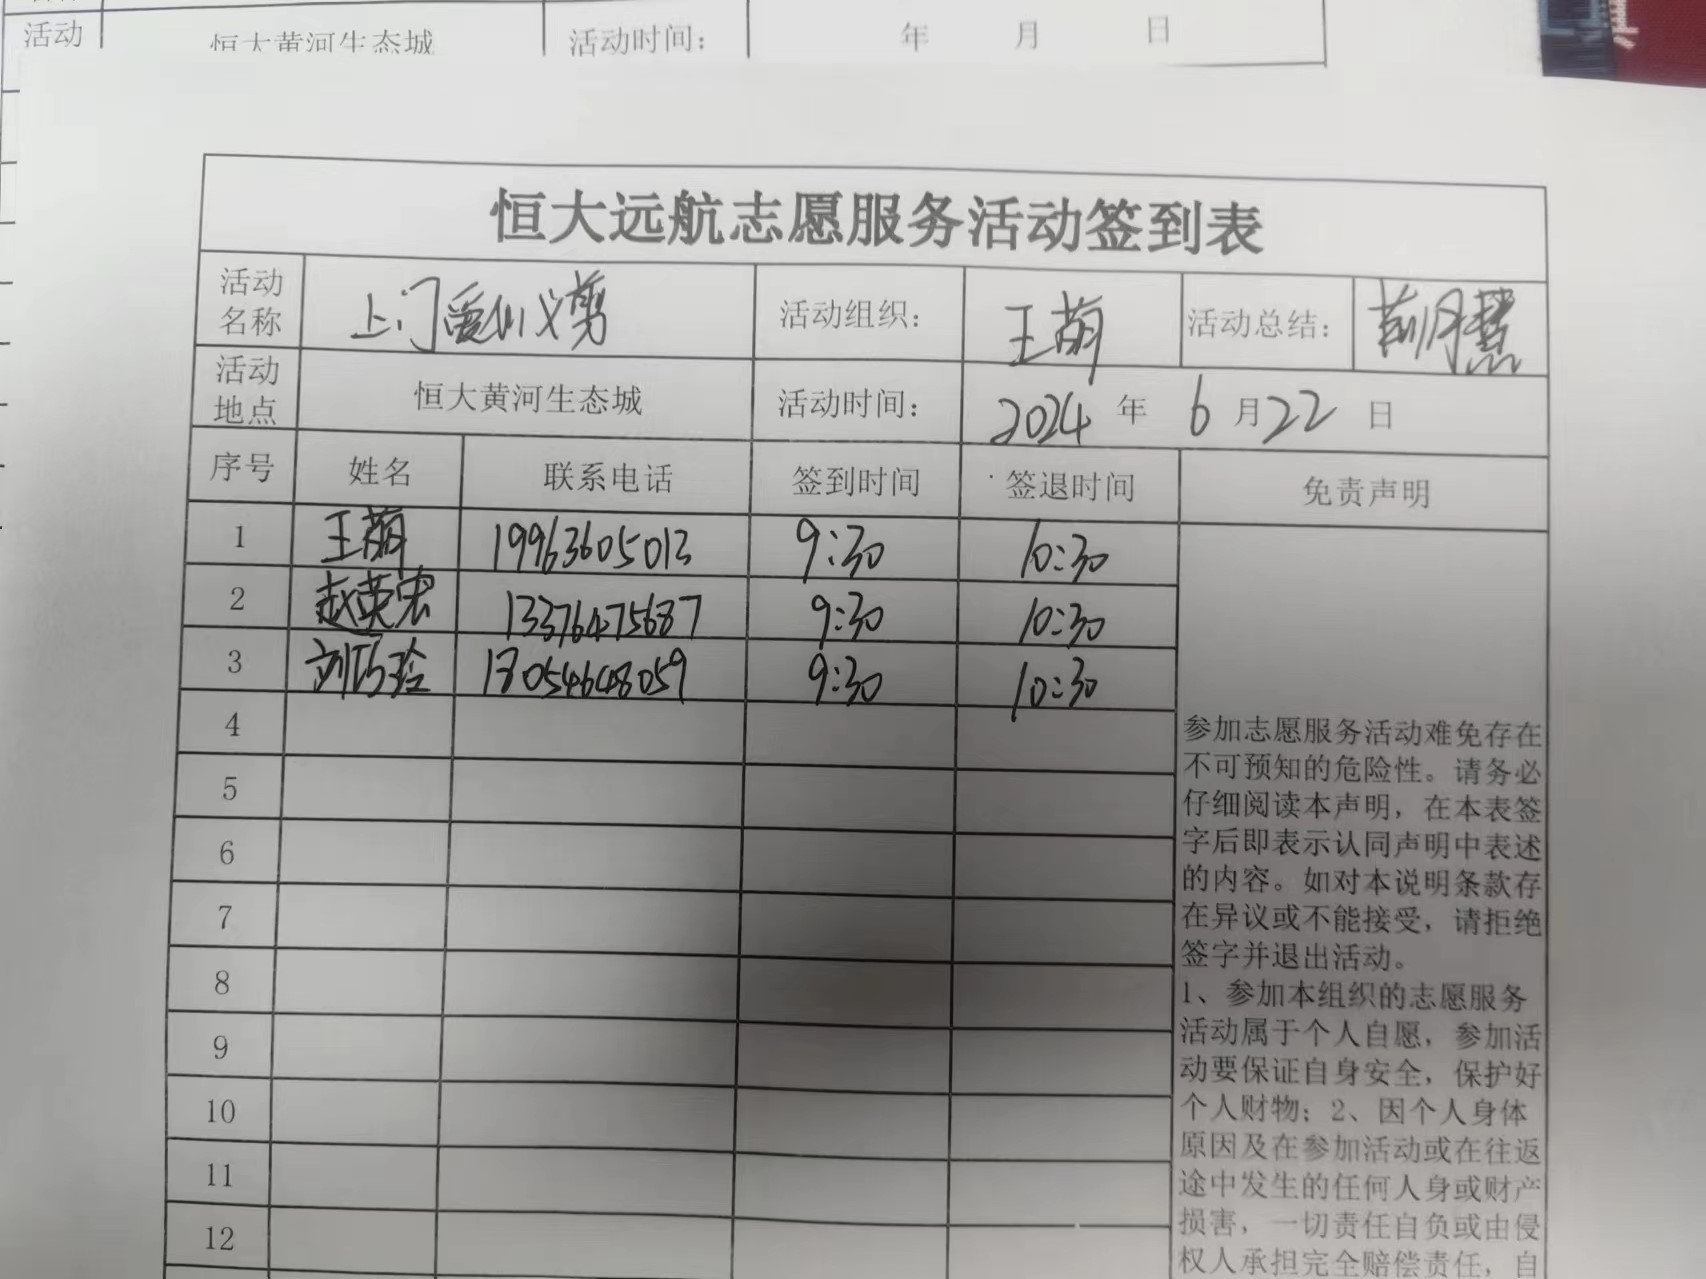 活动 恒大黄河生态城 活动时间： 年 月 日
恒大远航志愿服务活动签到表
活动名称 上门爱心义剪 活动组织： 王萌 活动总结：
活动地点 恒大黄河生态城 活动时间： 2024 年 6 月 22 日
序号 姓名 联系电话 签到时间 签退时间 免责声明
1 王萌 19963605013 9:30 10:30
2 赵英宏 13376475687 9:30 10:30
3 刘巧玲 18054648059 9:30 10:30
4
5
6
7
8
9
10
11
12
参加志愿服务活动难免存在
不可预知的危险性。请务必
仔细阅读本声明，在本表签
字后即表示认同声明中表述
的内容。如对本说明条款存
在异议或不能接受，请拒绝
签字并退出活动。
1、参加本组织的志愿服务
活动属于个人自愿，参加活
动要保证自身安全，保护好
个人财物；2、因个人身体
原因及在参加活动或在往返
途中发生的任何人身或财产
损害，一切责任自负或由侵
权人承担完全赔偿责任，自